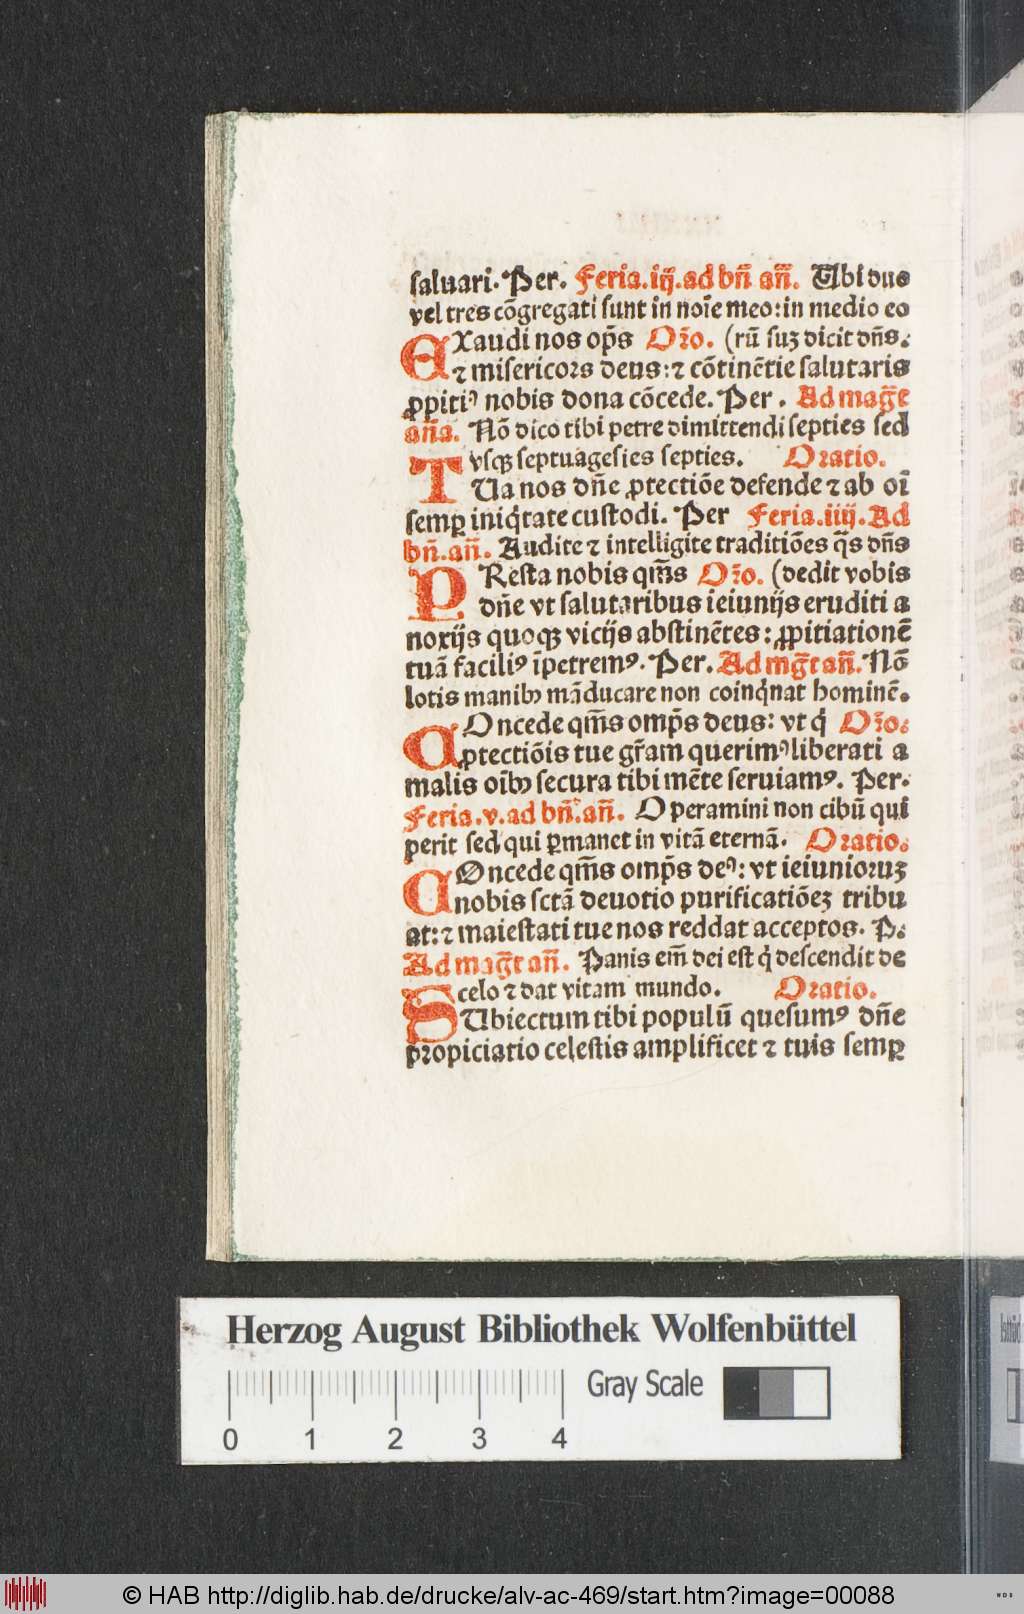 saluari. Per. Feria.iij.ad bn̄ an̄. Ubi duo
vel tres cõgregati sunt in noīe meo: in medio eo
EXaudi nos op̄s Or̄o. (rū suꝫ dicit dn̄s.
⁊ misericors deus: ⁊ cõtinẽtie salutaris
ꝓpitiꝰ nobis dona cõcede. Per . Ad mag̃t
an̄a. Nõ dico tibi petre dimittendi septies sed
vsqꝫ septuagesies septies. Oratio.
TUa nos dn̄e ꝓtectiõe defende ⁊ ab oī
semꝑ iniq̇tate custodi. Per Feria.iiij.Ad
bn̄.an̄. Audite ⁊ intelligite traditiões q̄s dn̄s
PResta nobis qm̄s Or̄o. (dedit vobis
dn̄e vt salutaribus ieiunijs eruditi a
noxijs quoqꝫ vicijs abstinẽtes: ꝓpitiationẽ
tuã faciliꝰ īpetremꝰ. Per. Ad mg̃t an̄. Nõ
lotis manibꝫ mãducare non coinq̇nat hominẽ.
COncede qm̄s omp̄s deus: vt q̇ Or̄o.
ꝓtectiõis tue gr̄am querimꝰ liberati a
malis oībꝫ secura tibi mẽte seruiamꝰ. Per.
Feria.v.ad bn̄.an̄. Operamini non cibū qui
perit sed qui ꝑmanet in vitã eternã. Oratio.
COncede qm̄s omp̄s deꝰ: vt ieiunioruꝫ
nobis sctã deuotio purificatiõeꝫ tribu
at: ⁊ maiestati tue nos reddat acceptos. P.
Ad mag̃t an̄. Panis em̄ dei est q̇ descendit de
celo ⁊ dat vitam mundo. Oratio.
SUbiectum tibi populū quesumꝰ dn̄e
propiciatio celestis amplificet ⁊ tuis semꝑ
Herzog August Bibliothek Wolfenbüttel
Gray Scale
0 1 2 3 4
© HAB http://diglib.hab.de/drucke/alv-ac-469/start.htm?image=00088